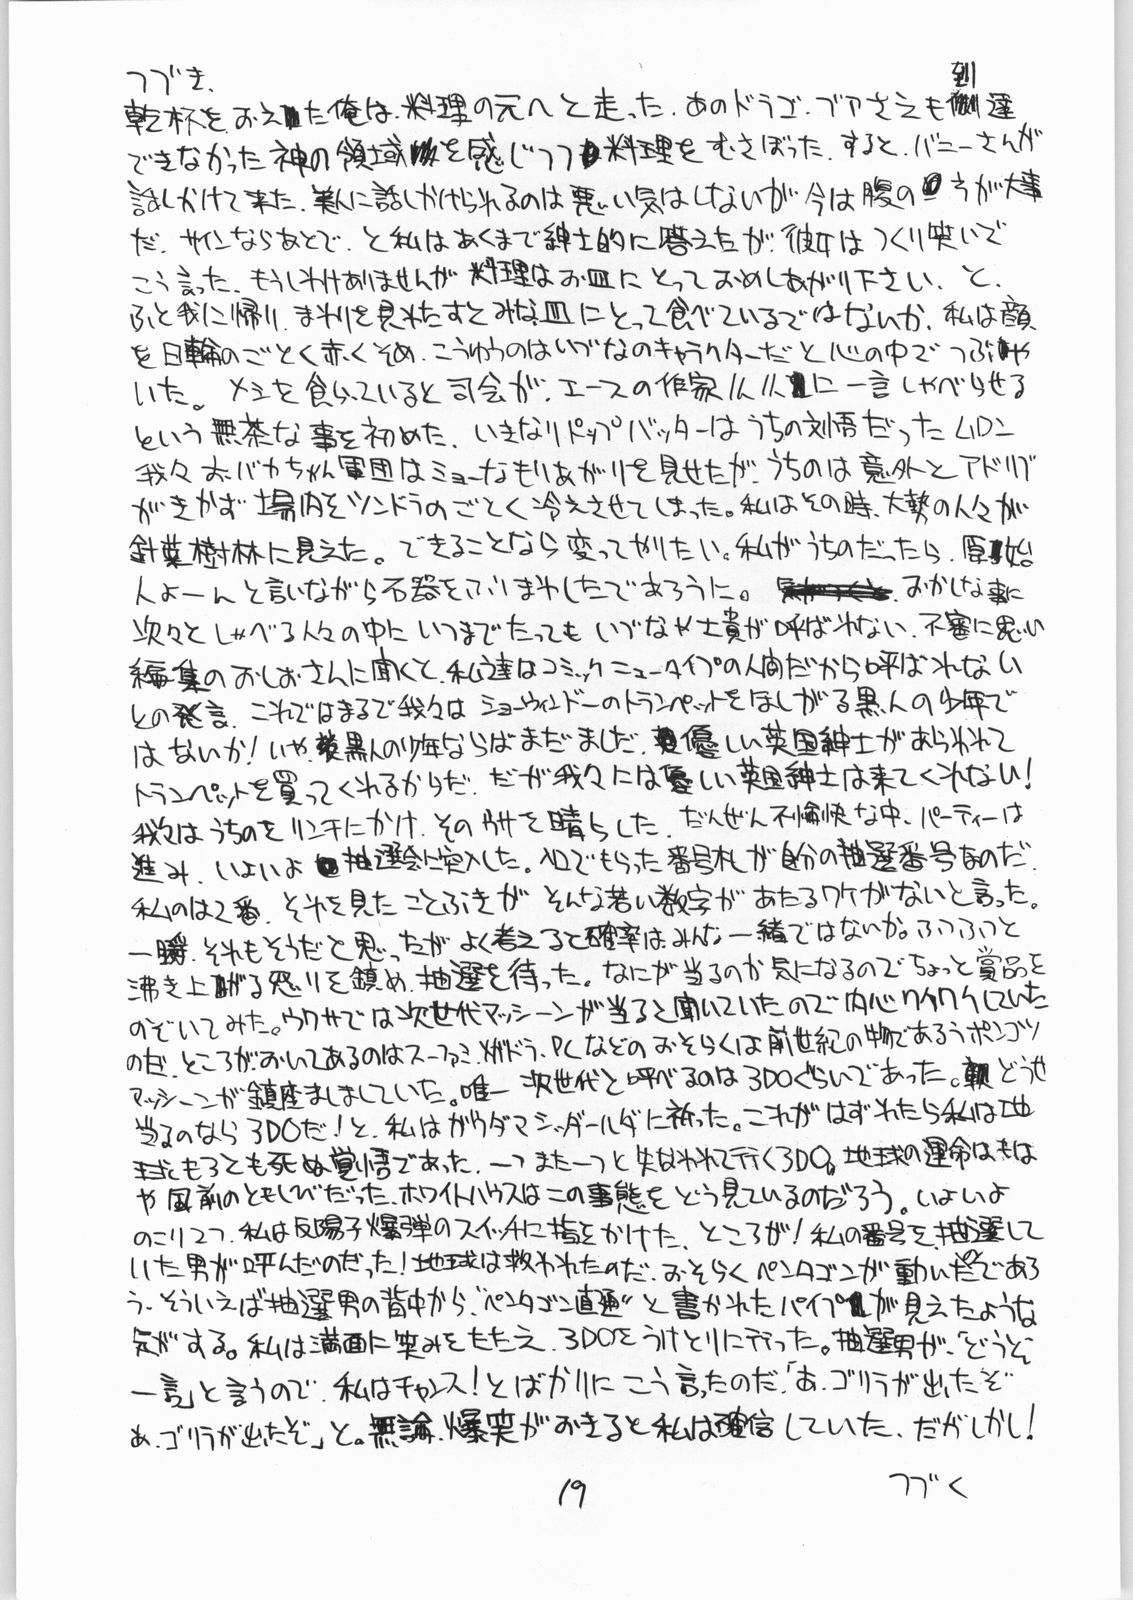 つづき、
乾杯をおえた俺は、料理の元へと走った。あのドラゴ・ゴアさえも到達
できなかった神の領域を感じつつ料理をむさぼった。すると、バニーさんが
話しかけて来た。美人に話しかけられるのは悪い気はしないが今は腹の方が大事
だ。サインならあとで、と私はあくまで紳士的に答えたが、彼女はつくり笑いで
こう言った。もうしわけありませんが料理はお皿にとっておめしあがり下さい、と、
ふと我に帰り、まわりを見わたすとみな皿にとって食べているではないか、私は顔
を日輪のごとく赤くそめ、こうゆうのはいづなのキャラクターだと心の中でつぶや
いた。メシを食らっていると司会が、エースの作家一人一人に一言しゃべらせる
という無茶な事を初めた、いきなりトップバッターはうちの刘悟だったムロン
我々おバカちゃん軍団はミョーなもりあがりを見せたが、うちのは意外とアドリブ
がきかず場内をツンドラのごとく冷えさせてしまった。私はその時、大勢の人々が
針葉樹林に見えた。できることなら変ってやりたい。私がうちのだったら、原始
人よーんと言いながら石器をふりまわしたであろうに。おかしな事に
次々としゃべる人々の中にいつまでたってもいづなや士貴が呼ばれない、不審に思い
編集のおしおさんに聞くと、私達はコミックニュータイプの人間だから呼ばれない
との発言、これではまるで我々はショーウィンドーのトランペットをほしがる黒人の少年で
はないか!いや、黒人の少年ならばまだましだ、優しい英国紳士があらわれて
トランペットを買ってくれるからだ、だが我々には優しい英国紳士は来てくれない!
我々はうちのをリンチにかけ、そのウサを晴らした、だんぜん不愉快な中、パーティーは
進み、いよいよ抽選会に突入した。入口でもらった番号札が自分の抽選番号なのだ、
私のは2番、それを見たことぶきがそんな若い数字があたるワケがないと言った。
一瞬、それもそうだと思ったがよく考えると確率はみんな一緒ではないか。ふつふつと
沸き上がる怒りを鎮め、抽選を待った。なにが当るのか気になるのでちょっと賞品を
のぞいてみた。ウワサでは次世代マッシーンが当ると聞いていたので内心ワクワクしていた
のだ、ところが、おいてあるのはスーファミ、メガドラ、PCなどのおそらくは前世紀の物であろうポンコツ
マッシーンが鎮座ましましていた。唯一次世代と呼べるのは3DOぐらいであった。どうせ
当るのなら3DOだ!と、私はガウダマ・シッダールダに祈った。これがはずれたら私は地
球ともろとも死ぬ覚悟であった、一つまた一つと失なわれて行く3DO。地球の運命はもは
や風前のともしびだった、ホワイトハウスはこの事態をどう見ているのだろう。いよいよ
のこり2つ、私は反陽子爆弾のスイッチに指をかけた、ところが!私の番号を、抽選して
いた男が呼んだのだった!地球は救われたのだ、おそらくペンタゴンが動いたのであろ
う、そういえば抽選男の背中から、“ペンタゴン直通”と書かれたパイプが見えたような
気がする。私は満面に笑みをたたえ、3DOをうけとりに行った。抽選男が、「どうぞ
一言」と言うので、私はチャンス!とばかりにこう言ったのだ、「あ、ゴリラが出たぞ
あ、ゴリラが出たぞ」と。無論、爆笑がおきると私は確信していた、だがしかし!
つづく
19